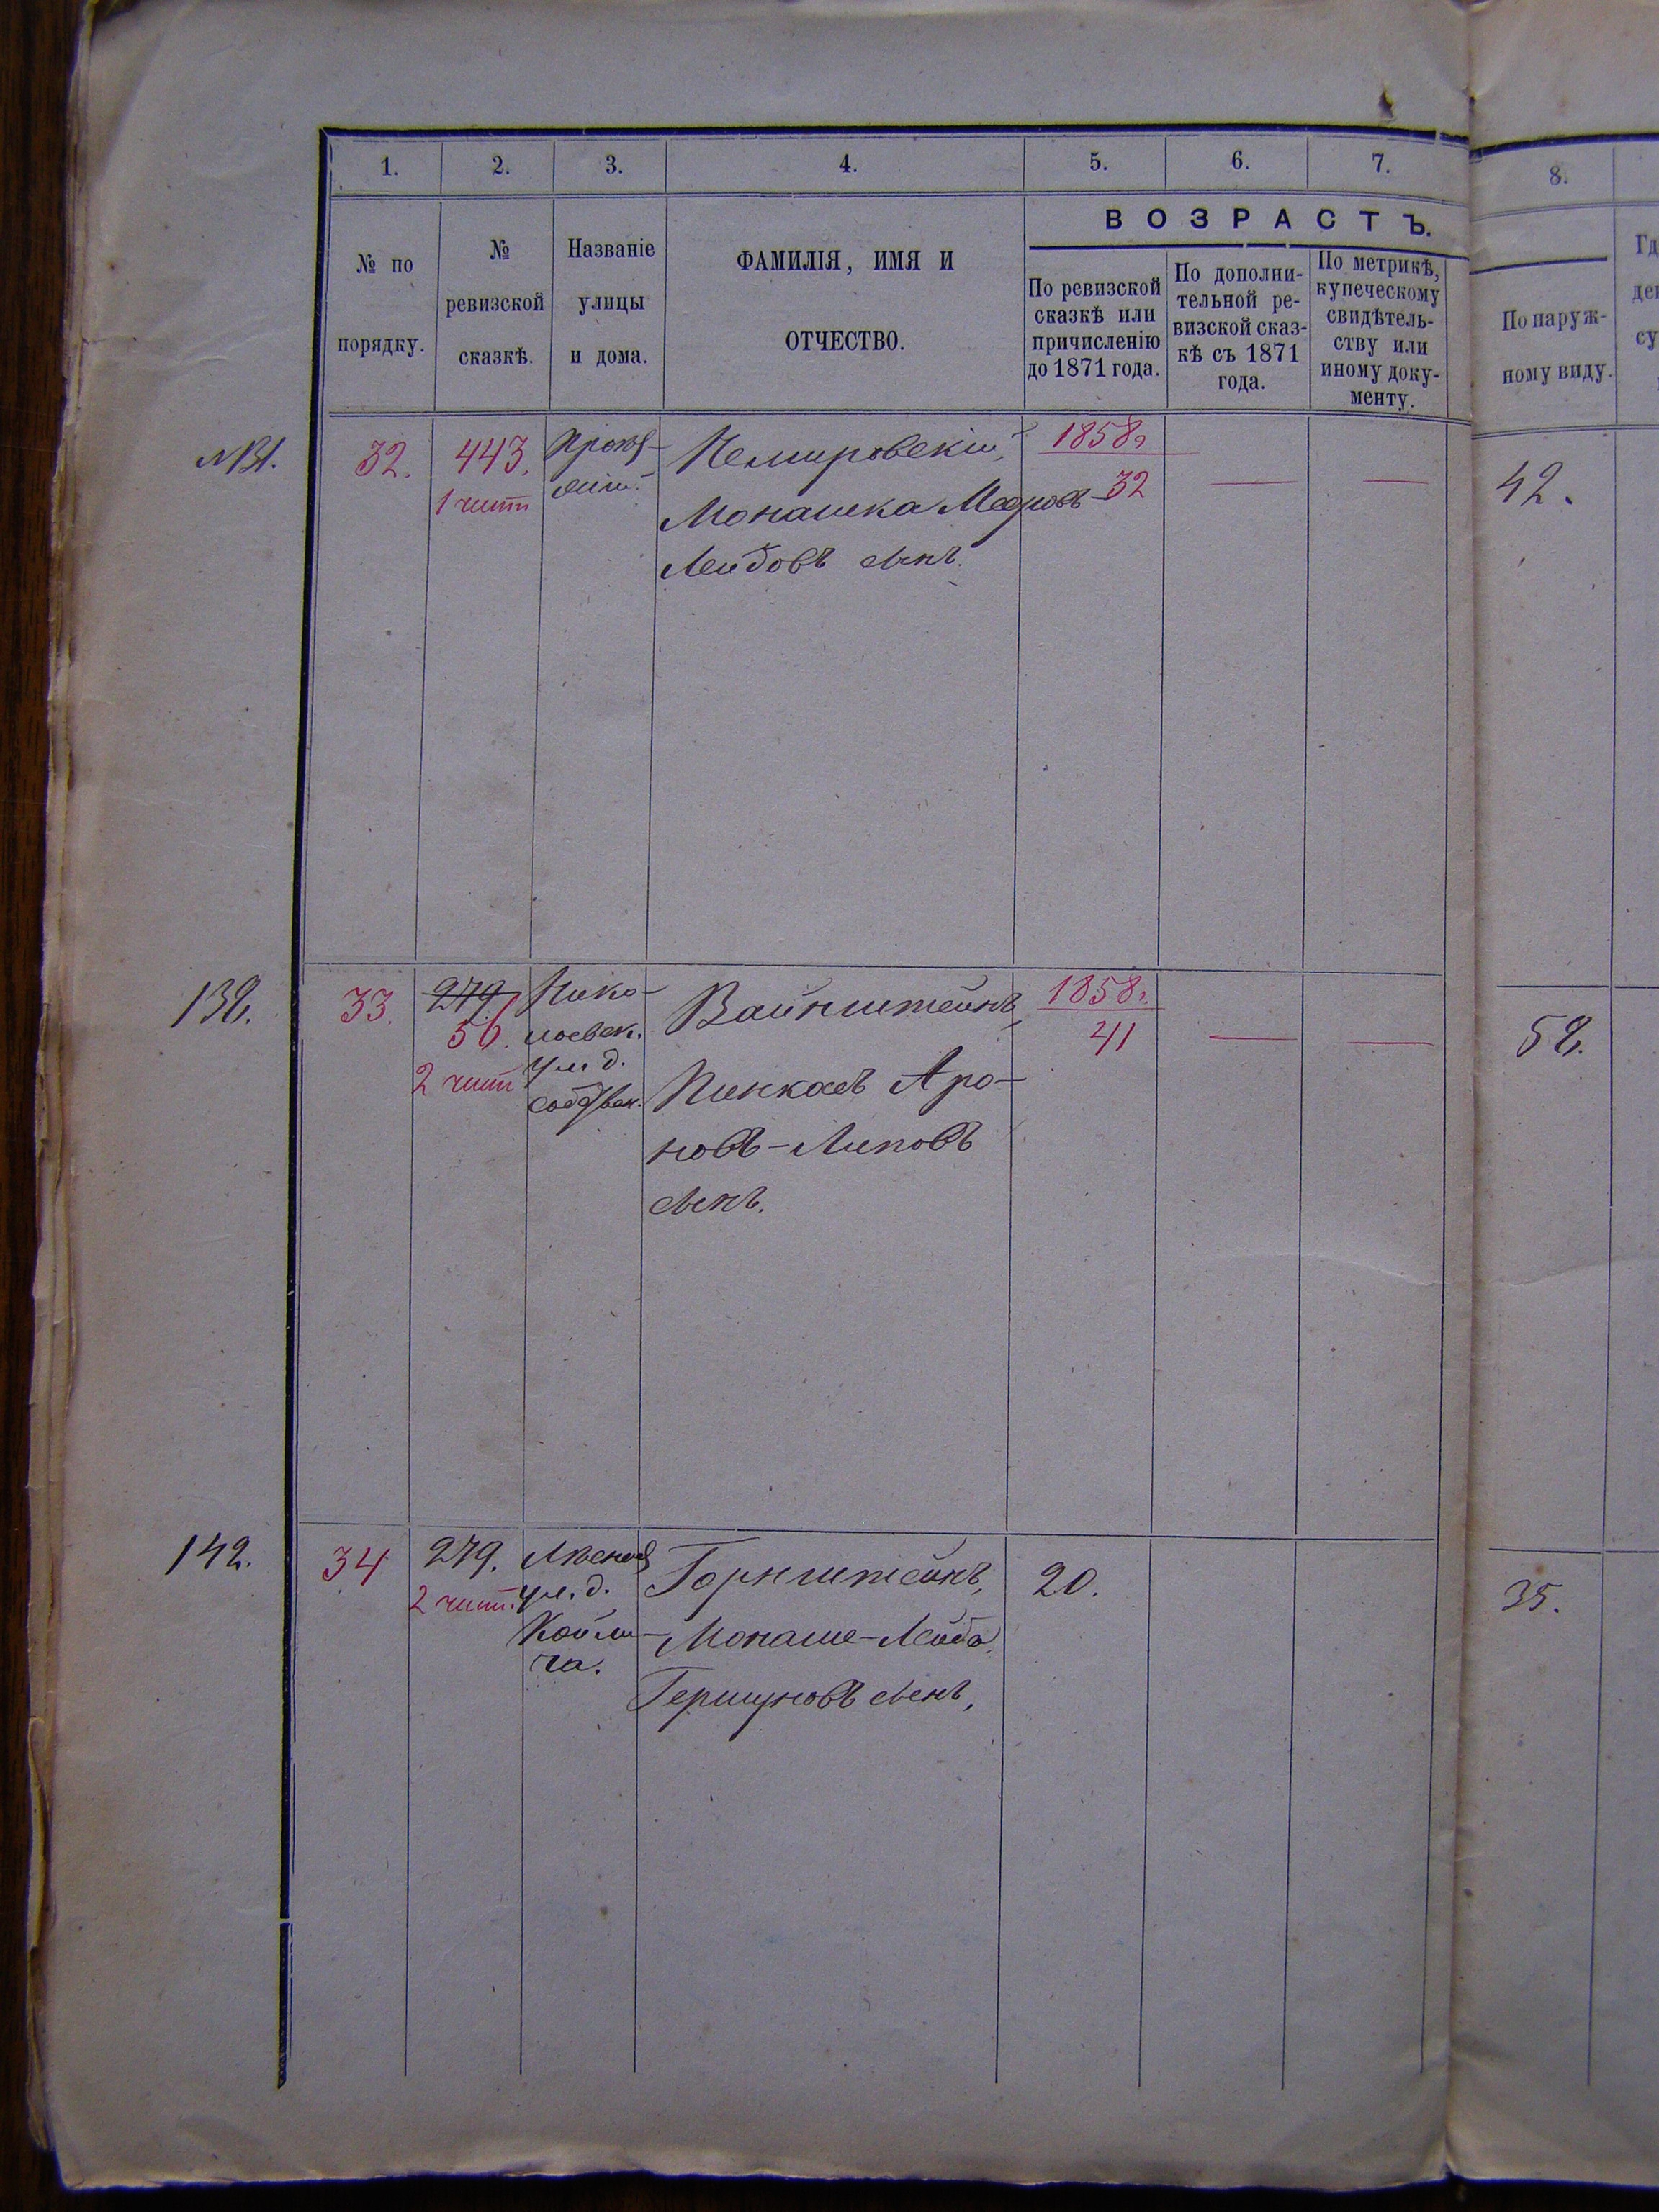 1. 2. 3. 4. 5. 6. 7. 8.
№ по
порядку.
№
ревизской
сказкѣ.
Названіе
улицы
и дома.
ФАМИЛІЯ, ИМЯ И
ОТЧЕСТВО.
ВОЗРАСТЪ.
По ревизской
сказкѣ или
причисленію
до 1871 года.
По дополни-
тельной ре-
визской сказ-
кѣ съ 1871
года.
По метрикѣ,
купеческому
свидѣтель-
ству или
иному доку-
менту.
По наруж-
ному виду.
32.
443.
Немировскій,
Монашка
Лейбовъ сынъ.
1858г
32
42.
138.
33.
279.
56.
Нико-
лаевск.
ул. д.
собствен.
Вайнштейнъ,
Пинкасъ Аро-
новъ-Липовъ
сынъ.
1858г.
41
58.
142.
34
279.
ул. д.
Горнштейнъ,
Монаше-Лейба
Гершуновъ сынъ,
20.
35.